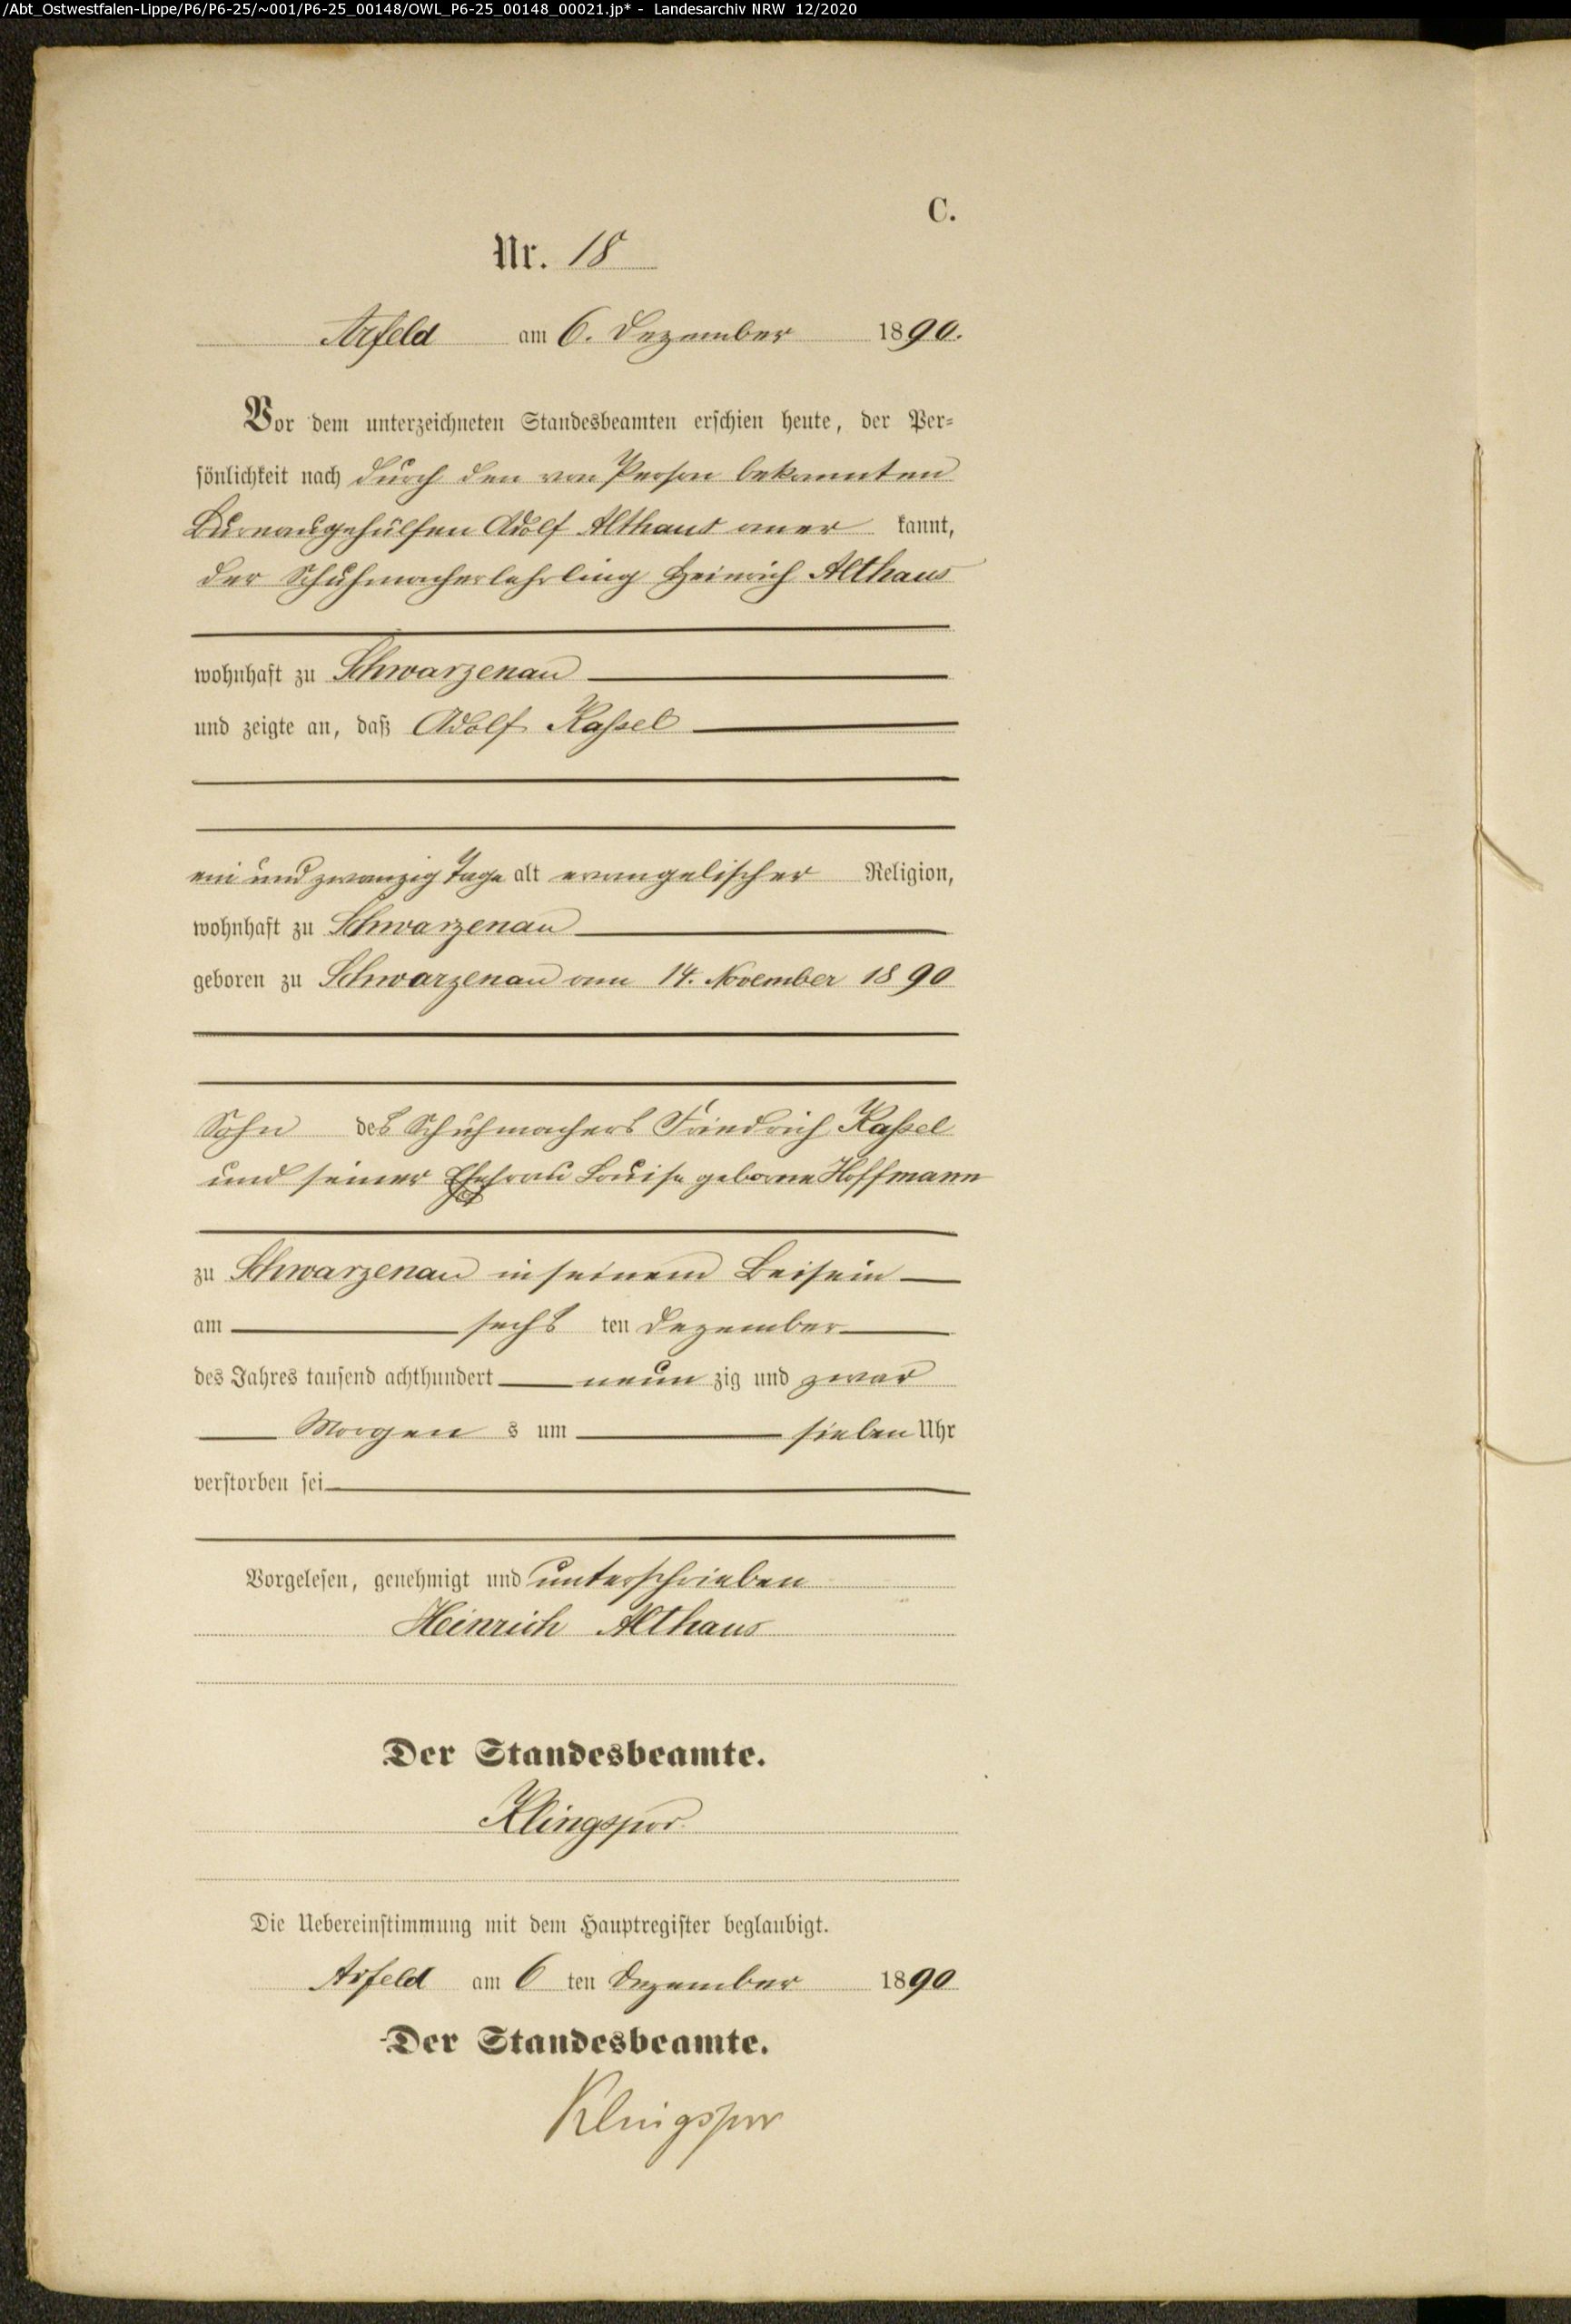 /Abt_Ostwestfalen-Lippe/P6/P6-25/~001/P6-25_00148/OWL_P6-25_00148_00021.jp* - Landesarchiv NRW 12/2020
C.
Nr. 18
Arfeld am 6. Dezember 1890.
Vor dem unterzeichneten Standesbeamten erschien heute, der Per-
sönlichkeit nach durch den von Person bekannten
Bureaugehülfen Adolf Althaus aner kannt,
der Schuhmacherlehrling Heinrich Althaus
wohnhaft zu Schwarzenau
und zeigte an, daß Adolf Kaßel
ein und zwanzig Tage alt evangelischer Religion,
wohnhaft zu Schwarzenau
geboren zu Schwarzenau am 14. November 1890
Sohn des Schuhmachers Friedrich Kaßel
und seiner Ehefrau Louise geborne Hoffmann
zu Schwarzenau in seinem Beisein
am sechs ten Dezember
des Jahres tausend achthundert neun zig und zwar
Morgen s um sieben Uhr
verstorben sei
Vorgelesen, genehmigt und unterschrieben
Heinrich Althaus
Der Standesbeamte.
Klingspor
Die Uebereinstimmung mit dem Hauptregister beglaubigt.
Arfeld am 6 ten Dezember 1890
Der Standesbeamte.
Klingspor